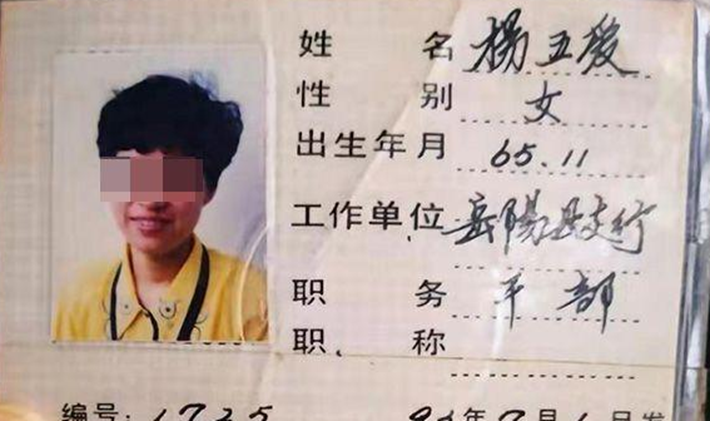 姓 名 楊五爱
性 别 女
出生年月 65.11
工作单位 岳陽县支行
职 务 干部
职 称
编号: 1725 年7月1日发